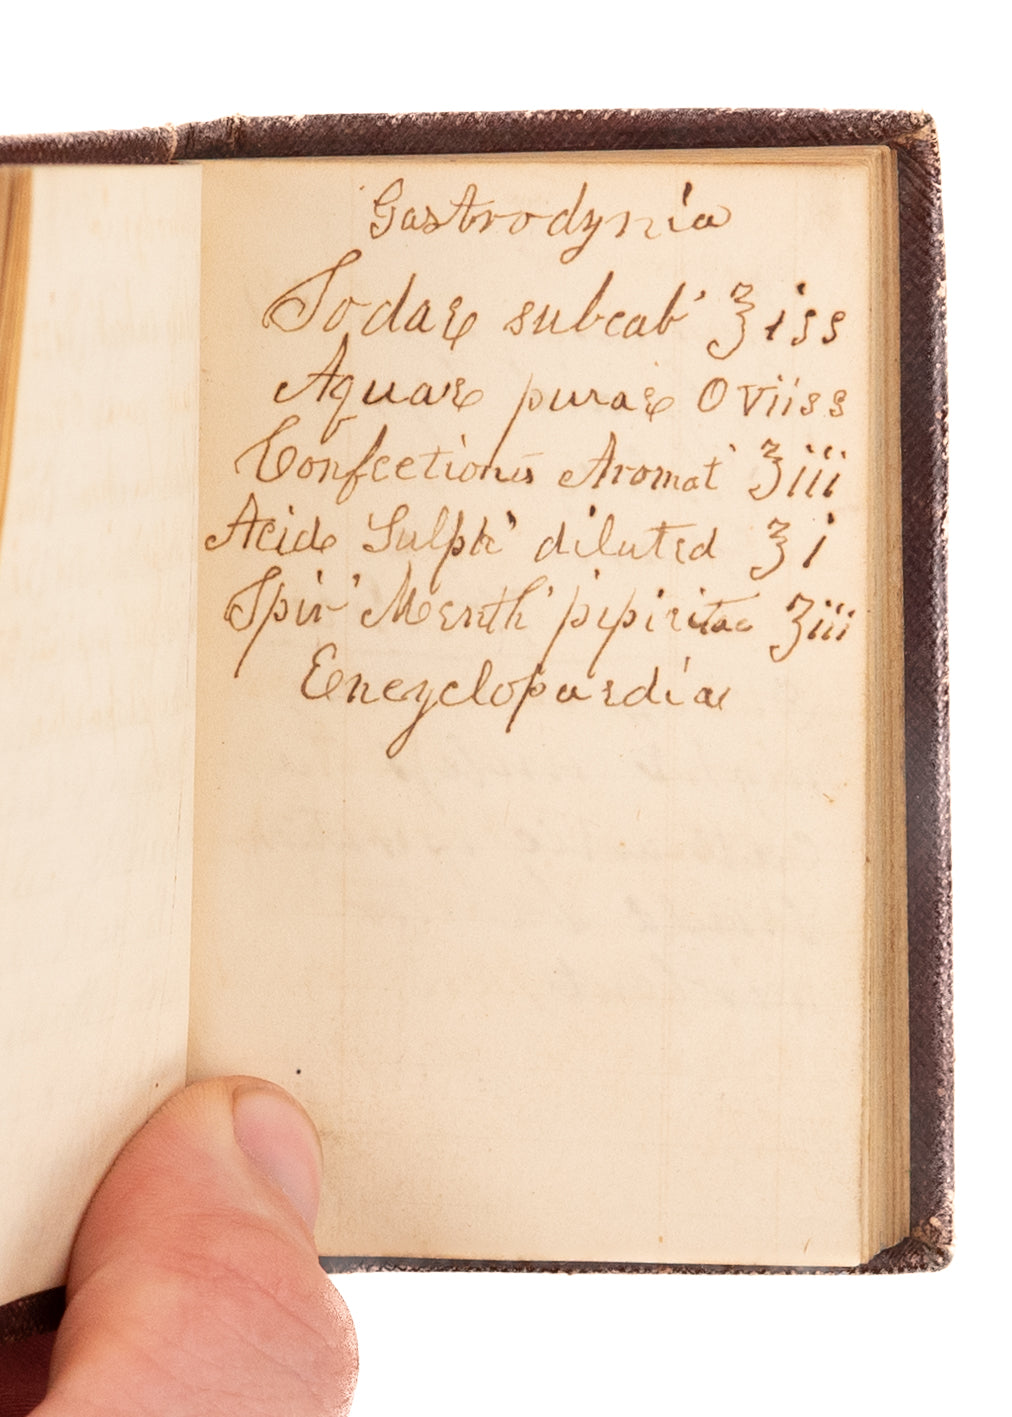 Gastrodynia
Sodae subcab' ʒiss
Aquae purae Oviiss
Confectionis Aromat' ʒiii
Acide Sulph' diluted ʒi
Spir' Menth' pipiritae ʒiii
Encyclopaedia